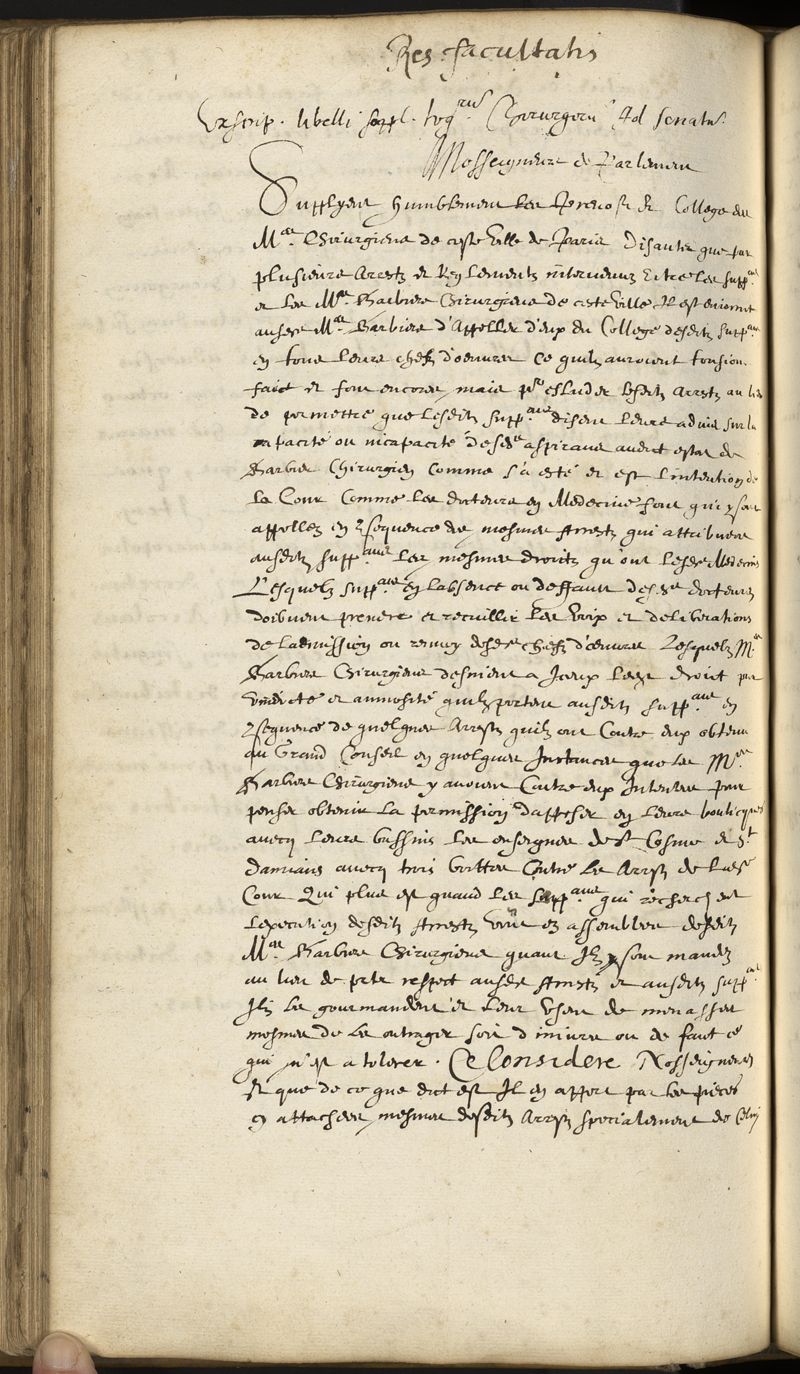 Res facultatis
Exscrip. libelli suppl. togrum Chirurgoru Ad senatu.
Nosseigneurs de Parlement
Supplyent humblement les Prevost et College des
Mes. Chirurgiens de ceste Ville de Paris Disants que par
plusieurs Arrestz et Reglements intervenuz Entre les suppans
et les Mes. Barbiers Chirurgiens de ceste ville Il est enjoinct
ausdts Mes. Barbiers d'Appeller d'eux du College desditz suppans
en tous leurs chefz d'oeuvres Ce quilz auroient tousjours
faict et font encores, mais pr esluder lesditz Arrestz au lieu
de permettre que lesditz suppans disent leurs advis sur la
capacité ou incapacité desdts aspirans audict estat de
Barbier Chirurgien Comme s'a esté et est l'intention de
la Cour Comme les docteurs en Medecine font qui y sont
appellez en 9sequence des mesmes Arrestz qui attribuent
ausditz suppans les mesmes droitz qu'ont lesdts Medecins
Lesquelz suppans en l'absence ou deffaut desdts docteurs
doibvent prendre et recuillir les Voix et deliberations
de Ladmission ou renvoy desdts chefz d'oeuvres Lesquelz Mes.
Barbiers Chirurgiens desnient a Iceux ledt droict par
et annosité quilz portent ausditz suppans en
9sequence de quelques Arrestz quilz ont Contre eux obtenu
au Grand Conseil en quelques Instances que les Mes.
Barbiers Chirurgiens y avoient Contre eux Intentees pour
penser obtenir la permission d'apposer en leurs bouticques
avecq leurs bassins les enseignes de St Cosme et St
Damians avecq trois boittes Contre les Arrestz de ladte
Cour Qui plus est quand les Suppans qui recherchent
L'execution desditz Arrestz vont es assemblees desditz
Mes. Barbiers Chirurgiens quant Ilz y sont mandez
au lieu de porter respect ausdts Arrestz et ausditz suppans
Ilz les gourmandent et leur usent de menasses
mesmes de les outrager soit d'injures ou de faict ce
qui n'est a tolerer. Ce Consideré Nosseigneurs
Et que de ce que dict est Il en appert par les pieces
cy attachees, mesmes desditz Arrestz specialement de Celuy